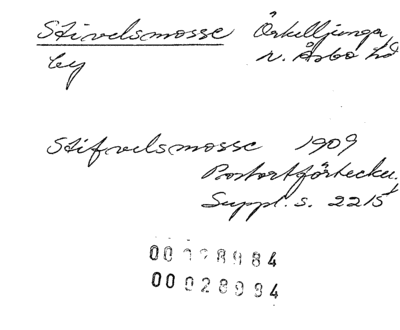 Stivelsmosse Örkelljunga
by N. Åsbo hd
Stifvelsmosse 1909
Postortförteckn.
Suppl. s. 2215
00 028984
00 028984